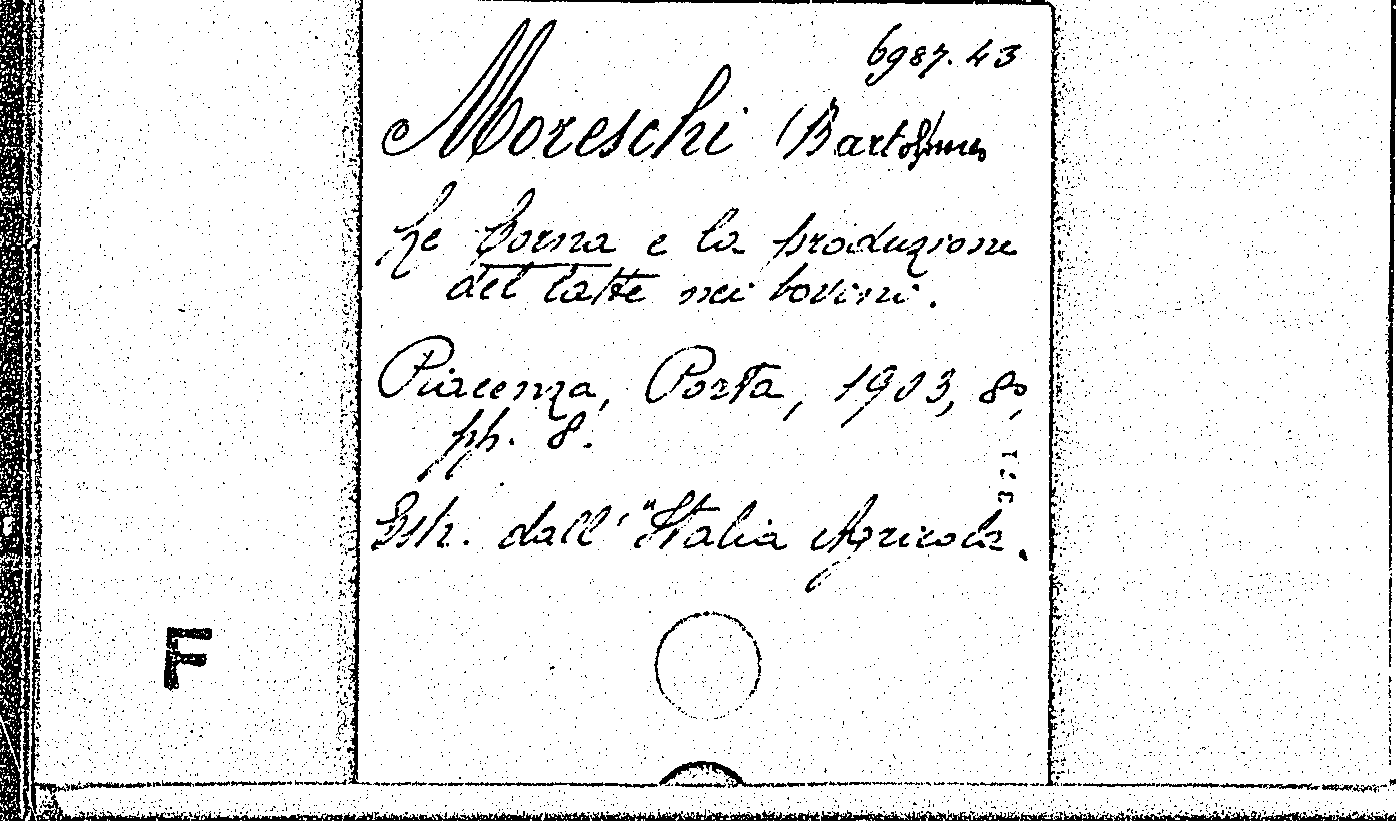 6987.43
Moreschi (Bartolomeo
Le Corna e la produzione
del latte nei bovini.
Piacenza, Porta, 1903, 8º,
pp. 8.
371
Estr. dall' "Italia Agricola.
F